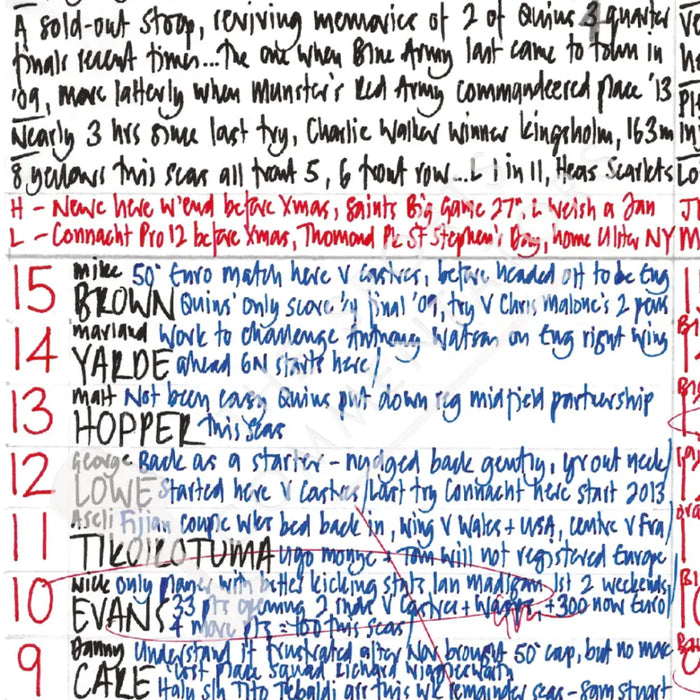 A sold-out Stoop, reviving memories of 2 of Quins 3 quarter
finals recent times...The one when Blue Army last came to town in
'09, more latterly when Munster's Red Army commandeered place '13
Nearly 3 hrs since last try, Charlie Walker winner Kingsholm, 163m
8 yellows this seas all front 5, 6 front row...L 1 in 11, Heas Scarlets
H - Newc here w'end before Xmas, Saints Big Game 27th, L Welsh 2 Jan
L - Connacht Pro12 before Xmas, Thomond Pk St Stephen's Day, home Ulster NY
15 Mike BROWN 50th Euro match here v Castres, before headed off to be Eng
Quins' only score ¼ final '09, try v Chris Malone's 2 pens
14 Marland YARDE Work to challenge Anthony Watson on Eng right wing
ahead 6N starts here/
13 Matt HOPPER Not been easy Quins put down reg midfield partnership
this seas
12 George LOWE Back as a starter - nudged back gently, grout neck/
Started here v Castres/Last try Connacht here start 2013
11 Aseli TIKOIROTUMA Fijian couple wks bed back in, wing v Wales + USA, centre v Fra/
Ugo Monye + Tom Will not registered Europe
10 Nick EVANS Only player with better kicking stats Ian Madigan 1st 2 weekends/
33 pts opening 2 rnds v Castres + Wasps, +300 now Euro
4 more pts = 100 this seas/
9 Danny CARE Understand it frustrated after Nov brought 50th cap, but no more
last place squad Richard Wigglesworth
Italy s/h Tito Tebaldi arr this wk remainder seas - Sam Stuart